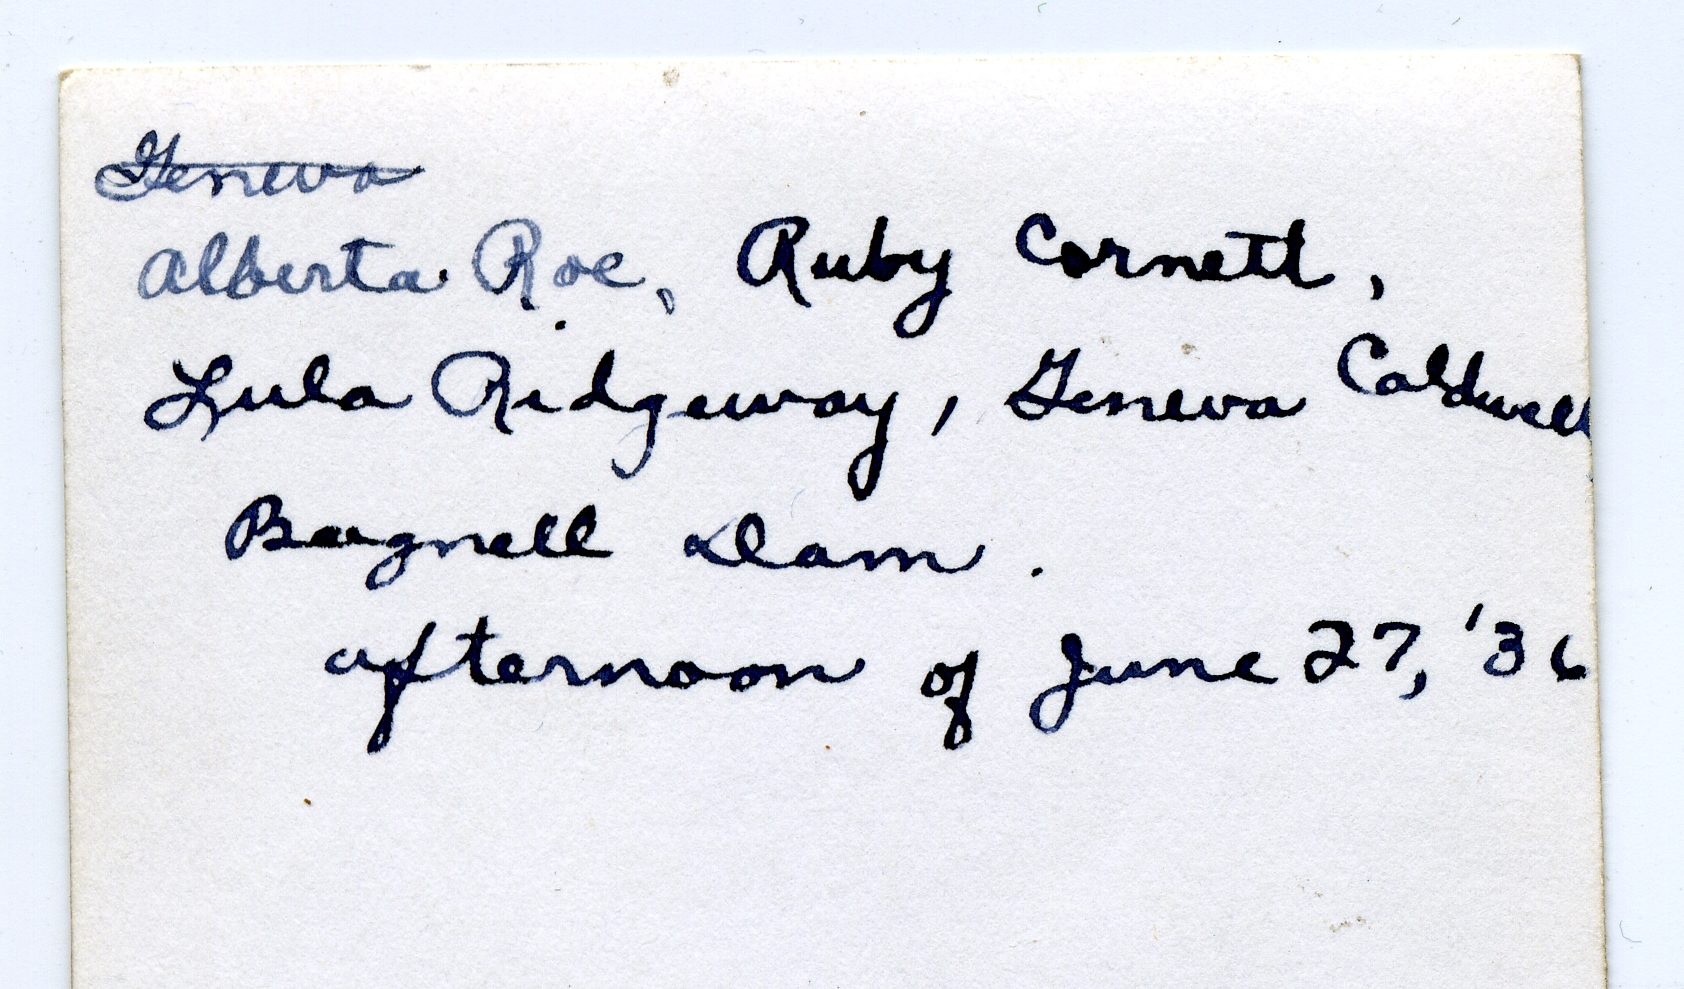 Geneva
Alberta Roe, Ruby Cornett,
Lula Ridgeway, Geneva Caldwell
Bagnell Dam.
afternoon of June 27, '36